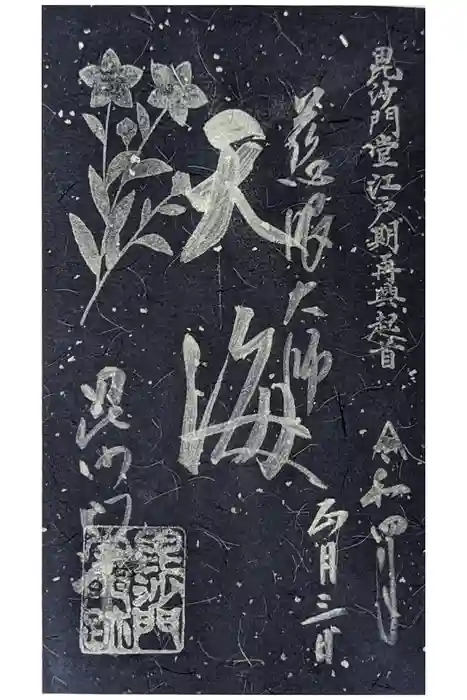 毘沙門堂江戸期再興起首
令和四年
正月三日
慈眼大師
天海
毘沙門堂
毘沙門